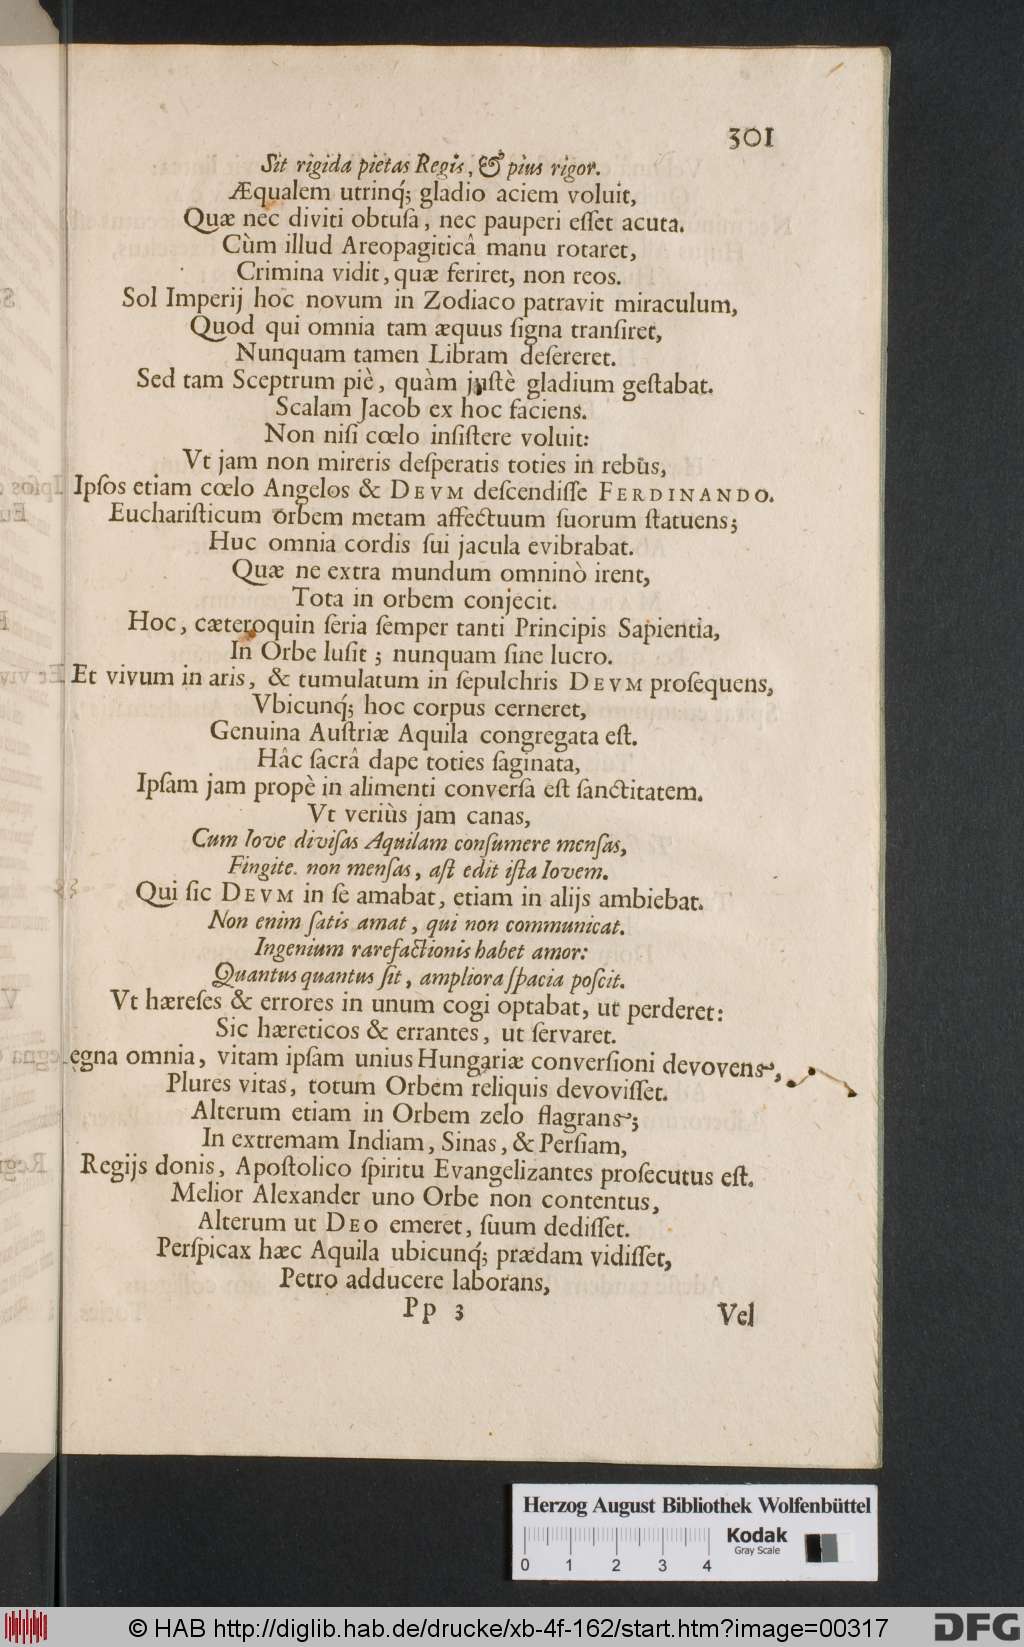 301
Sit rigida pietas Regis, & pius rigor.
Æqualem utrinq́; gladio aciem voluit,
Quæ nec diviti obtuſa, nec pauperi eſſet acuta.
Cùm illud Areopagiticâ manu rotaret,
Crimina vidit, quæ feriret, non reos.
Sol Imperij hoc novum in Zodiaco patravit miraculum,
Quod qui omnia tam æquus ſigna tranſiret,
Nunquam tamen Libram deſereret.
Sed tam Sceptrum piè, quàm juſtè gladium geſtabat.
Scalam Jacob ex hoc faciens.
Non niſi cœlo inſiſtere voluit:
Vt jam non mireris deſperatis toties in rebus,
Ipſos etiam cœlo Angelos & DEVM deſcendiſſe FERDINANDO.
Euchariſticum orbem metam affectuum ſuorum ſtatuens;
Huc omnia cordis ſui jacula evibrabat.
Quæ ne extra mundum omninò irent,
Tota in orbem conjecit.
Hoc, cæteroquin ſeria ſemper tanti Principis Sapientia,
In Orbe luſit; nunquam ſine lucro.
Et vivum in aris, & tumulatum in ſepulchris DEVM proſequens,
Vbicunq́; hoc corpus cerneret,
Genuina Auſtriæ Aquila congregata eſt.
Hâc ſacrâ dape toties ſaginata,
Ipſam jam propè in alimenti converſa eſt ſanctitatem.
Vt veriùs jam canas,
Cum Iove diviſas Aquilam conſumere menſas,
Fingite. non menſas, aſt edit iſta Iovem.
Qui ſic DEVM in ſe amabat, etiam in alijs ambiebat.
Non enim ſatis amat, qui non communicat.
Ingenium rarefactionis habet amor:
Quantus quantus ſit, ampliora ſpacia poſcit.
Vt hæreſes & errores in unum cogi optabat, ut perderet:
Sic hæreticos & errantes, ut ſervaret.
egna omnia, vitam ipſam unius Hungariæ converſioni devovens,
Plures vitas, totum Orbem reliquis devoviſſet.
Alterum etiam in Orbem zelo flagrans;
In extremam Indiam, Sinas, & Perſiam,
Regijs donis, Apoſtolico ſpiritu Evangelizantes proſecutus eſt.
Melior Alexander uno Orbe non contentus,
Alterum ut DEO emeret, ſuum dediſſet.
Perſpicax hæc Aquila ubicunq́; prædam vidiſſet,
Petro adducere laborans,
Pp 3 Vel
Herzog August Bibliothek Wolfenbüttel
Kodak
Gray Scale
0 1 2 3 4
© HAB http://diglib.hab.de/drucke/xb-4f-162/start.htm?image=00317
DFG